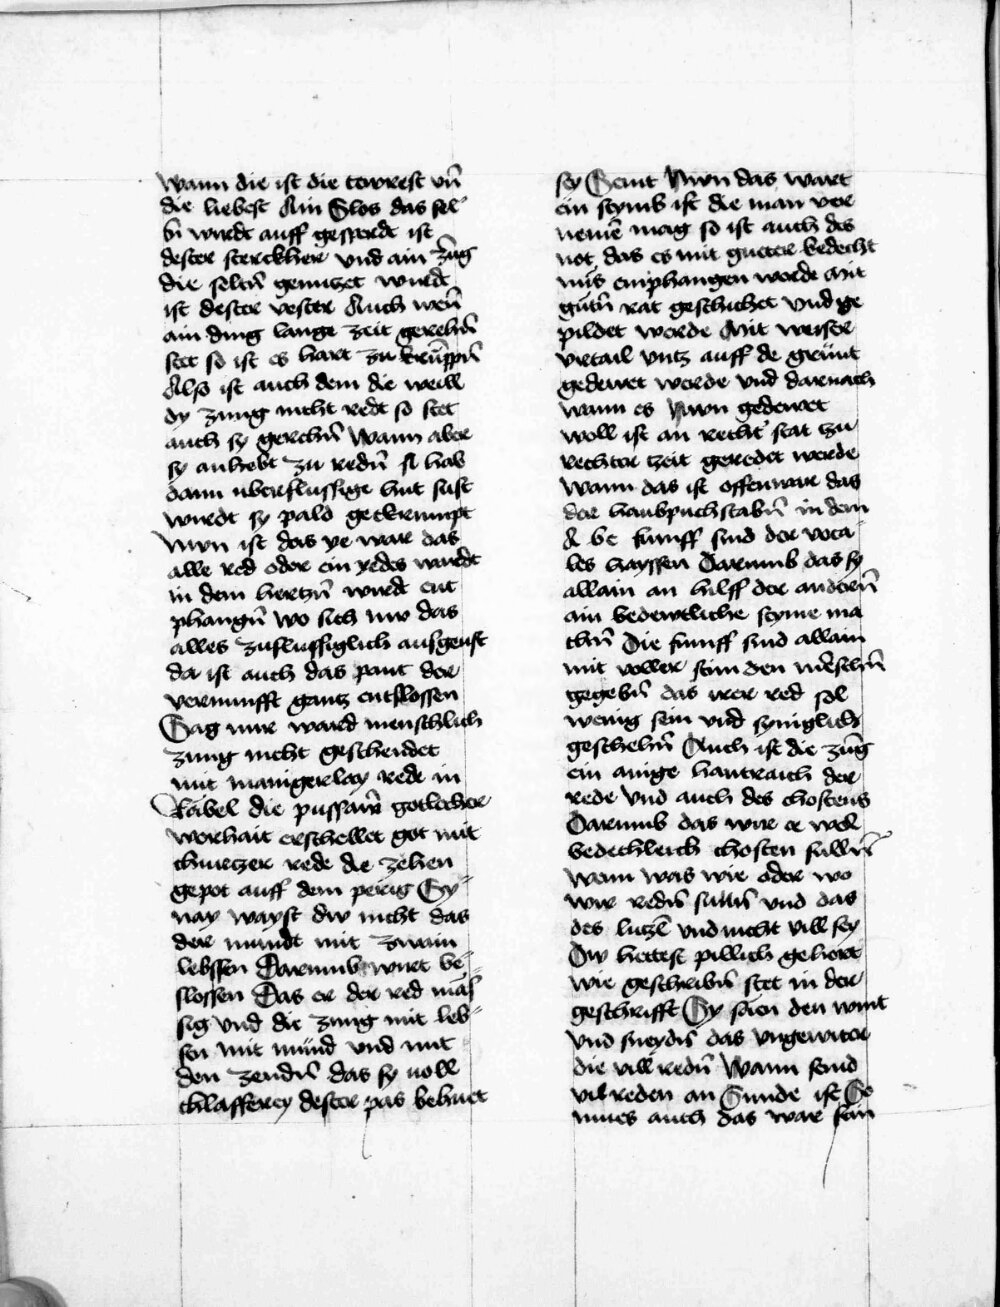 wann die ist die tewrest vn̄
die liebest Ain Slos das sel¬
tn̄ wirdt auff gesperdt ist
dester sterckher vnd ain zūg
die seltn̄ genutzet wirdt
ist dester vester Auch wen̄
ain ding lange zeit gerehn̄
stet so ist es hart zu krūppn̄
Also ist auch dem die weill
dy zung nicht redt so stet
auch sy gerehn̄ Wann aber
sy anhebt zu redn̄ A hab
dann vberflussige hut sust
wirdt sy pald gekrumpt
Nwn ist das ye war das
alle red oder ein yedes wardt
in dem hertzn̄ wirdt ent
phangn̄ wo sich nw das
alles zuflussiglich ausgeust
da ist auch das pant der
vernunfft gantz entslossen
Sag mir ward menschlich
zung nicht gescheidet
mit manigerlay rede in
Babel die pussawn̄ gotlicher
worhait erschellet got mit
churtzer rede die zehen
gepot auff dem perig Sy¬
nay wayst dw nicht das
der mundt mit zwain
lebssen Darumb wirt be¬
slossen Das er der red mās¬
sig vnd die zung mit leb¬
sen mit mūnd vnd mit
den zendn̄ das sy voll
chlafferey dester pas behuet
sey Seint Nwn das wart
ein stymb ist die man ver
nemē mag so ist auch des
not das es mit gueter bedecht
nus emphangen werde mit
gutn̄ rat geschichet vnd ge
pildet werde Mit weiser
vrtail vntz auff de grunt
gedewet werde vnd darnach
wann es Nwn gedewet
woll ist an recht' stat zu
rechter zeit geredet werde
Wann das ist offenwar das
der haubpuchstabn̄ in dem
A be funff sind der voca
les hayssen Darumb das sy
allain an hilff der andern̄
ain bedewtliche styme ma
chn̄ Die funff sind allain
mit voller stim den mēschn̄
gegebn̄ das irer red sol
wenig sein vnd syniglich
geschehn̄ Auch ist die zūg
ein ainige hantraich der
rede vnd auch des chostens
Darumb das wir e wol
bedechleich chosten sulln̄
wem was wie oder wo
wir redn̄ sulln̄ vnd das
des lutzl̄ vnd nicht vill sey
Dw hettest pillich gehort
wie geschribn̄ stet in der
geschrifft Sy säen den wint
vnd sneydn̄ das vngewiter
die vill redn̄ Wann seind
vil reden an Sunde ist Es
mues auch das war sein